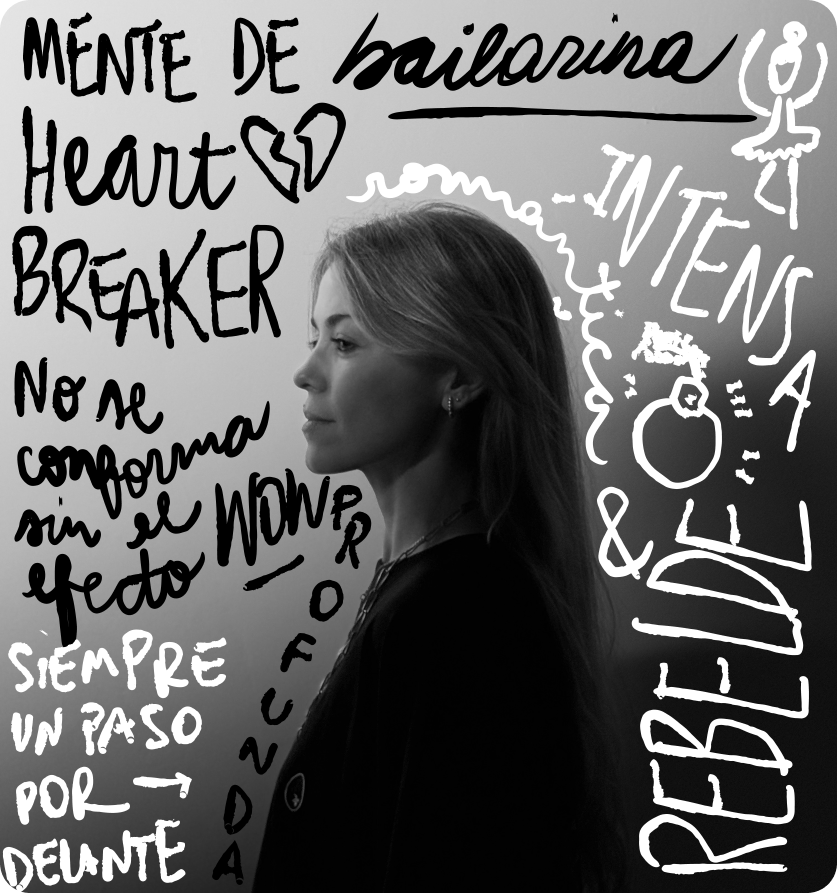 MENTE DE bailarina
Heart
BREAKER
romántica
INTENSA
No se
conforma
sin el
efecto WOW
PROFUNDA
&
REBELDE
SIEMPRE
UN PASO
POR →
DELANTE